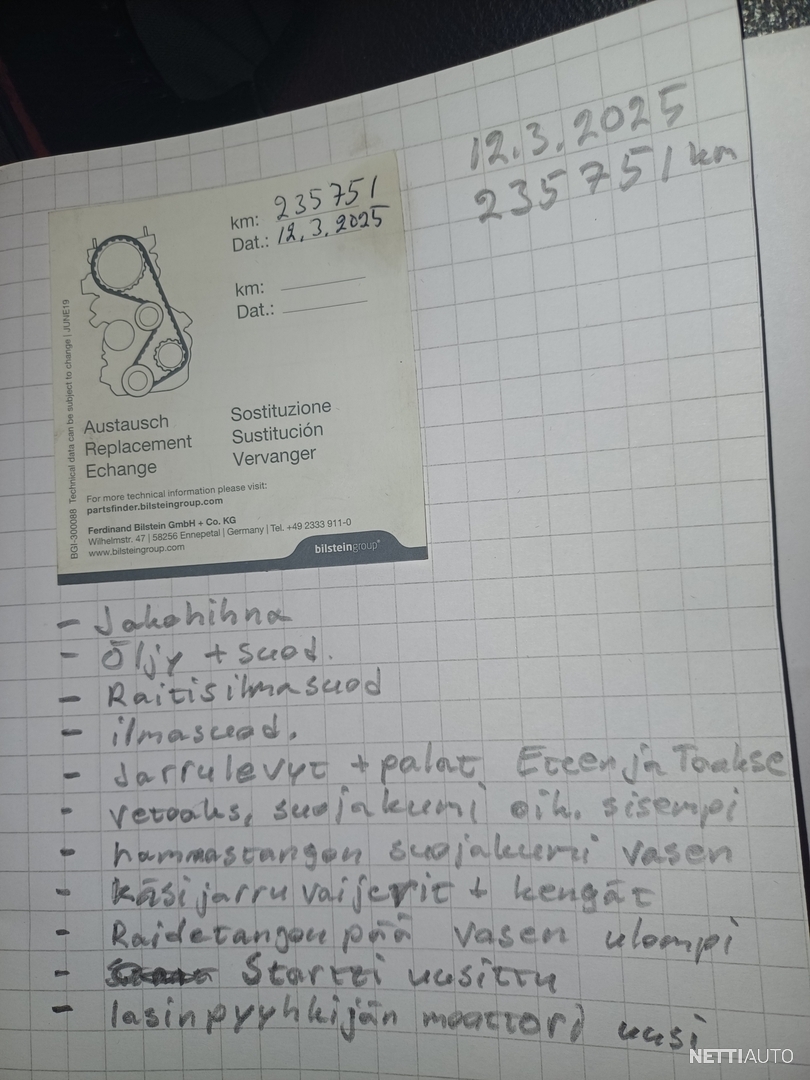 12.3.2025
235751 km
km: 235751
Dat.: 12.3.2025
km:
Dat.:
BGI-300088 Technical data can be subject to change | JUNE19
Austausch
Replacement
Echange
Sostituzione
Sustitución
Vervanger
For more technical information please visit:
partsfinder.bilsteingroup.com
Ferdinand Bilstein GmbH + Co. KG
Wilhelmstr. 47 | 58256 Ennepetal | Germany | Tel. +49 2333 911-0
www.bilsteingroup.com
bilsteingroup®
- Jakohihna
- Öljy + suod.
- Raitisilmasuod
- ilmasuod.
- Jarrulevyt + palat Eteen ja Taakse
- vetoaks, suojakumi oik. sisempi
- hammastangon suojakumi vasen
- käsijarru vaijerit + kengät
- Raidetangon pää vasen ulompi
- Startti uusittu
- lasinpyyhkijän moottori uusi
NETTIAUTO